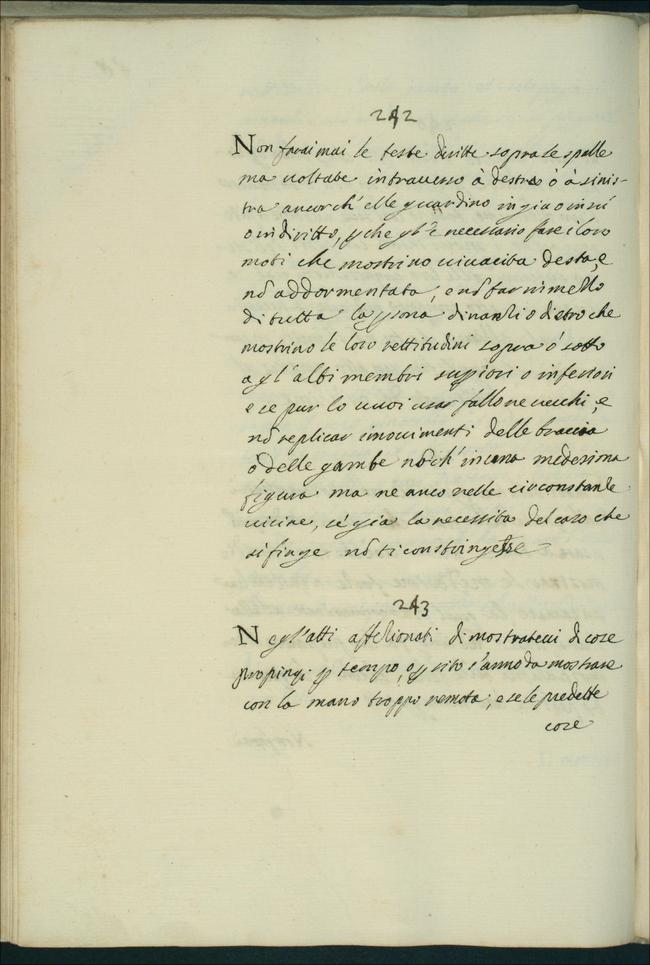 242
Non farai mai le teste diritte sopra le spalle
ma voltate intraverso à destra ò à sinis-
tra ancorch' elle guardino in giu o in sú
o in diritto, p che gl'è necessario fare i loro
moti che mostrino vivacita desta, e
nõ addormentata, e nõ far un mello
di tutta la psona dinanzi o dietro che
mostrino le loro rettitudini sopra ó sotto
agl' altri membri supiori o inferiori
e se pur lo vuoi usar fallo ne vecchi, e
nõ replicar i movimenti delle braccia
ó delle gambe nõch' in una medesima
figura ma ne anco nelle circonstante
vicine, se gia la necessita del caso che
si finge nõ ti constringesse
243
Negl' atti affetionati dimostrativi di cose
propinqi p tempo, o p sito s'anno da mostrare
con la mano troppo remota, e se le predette
cose